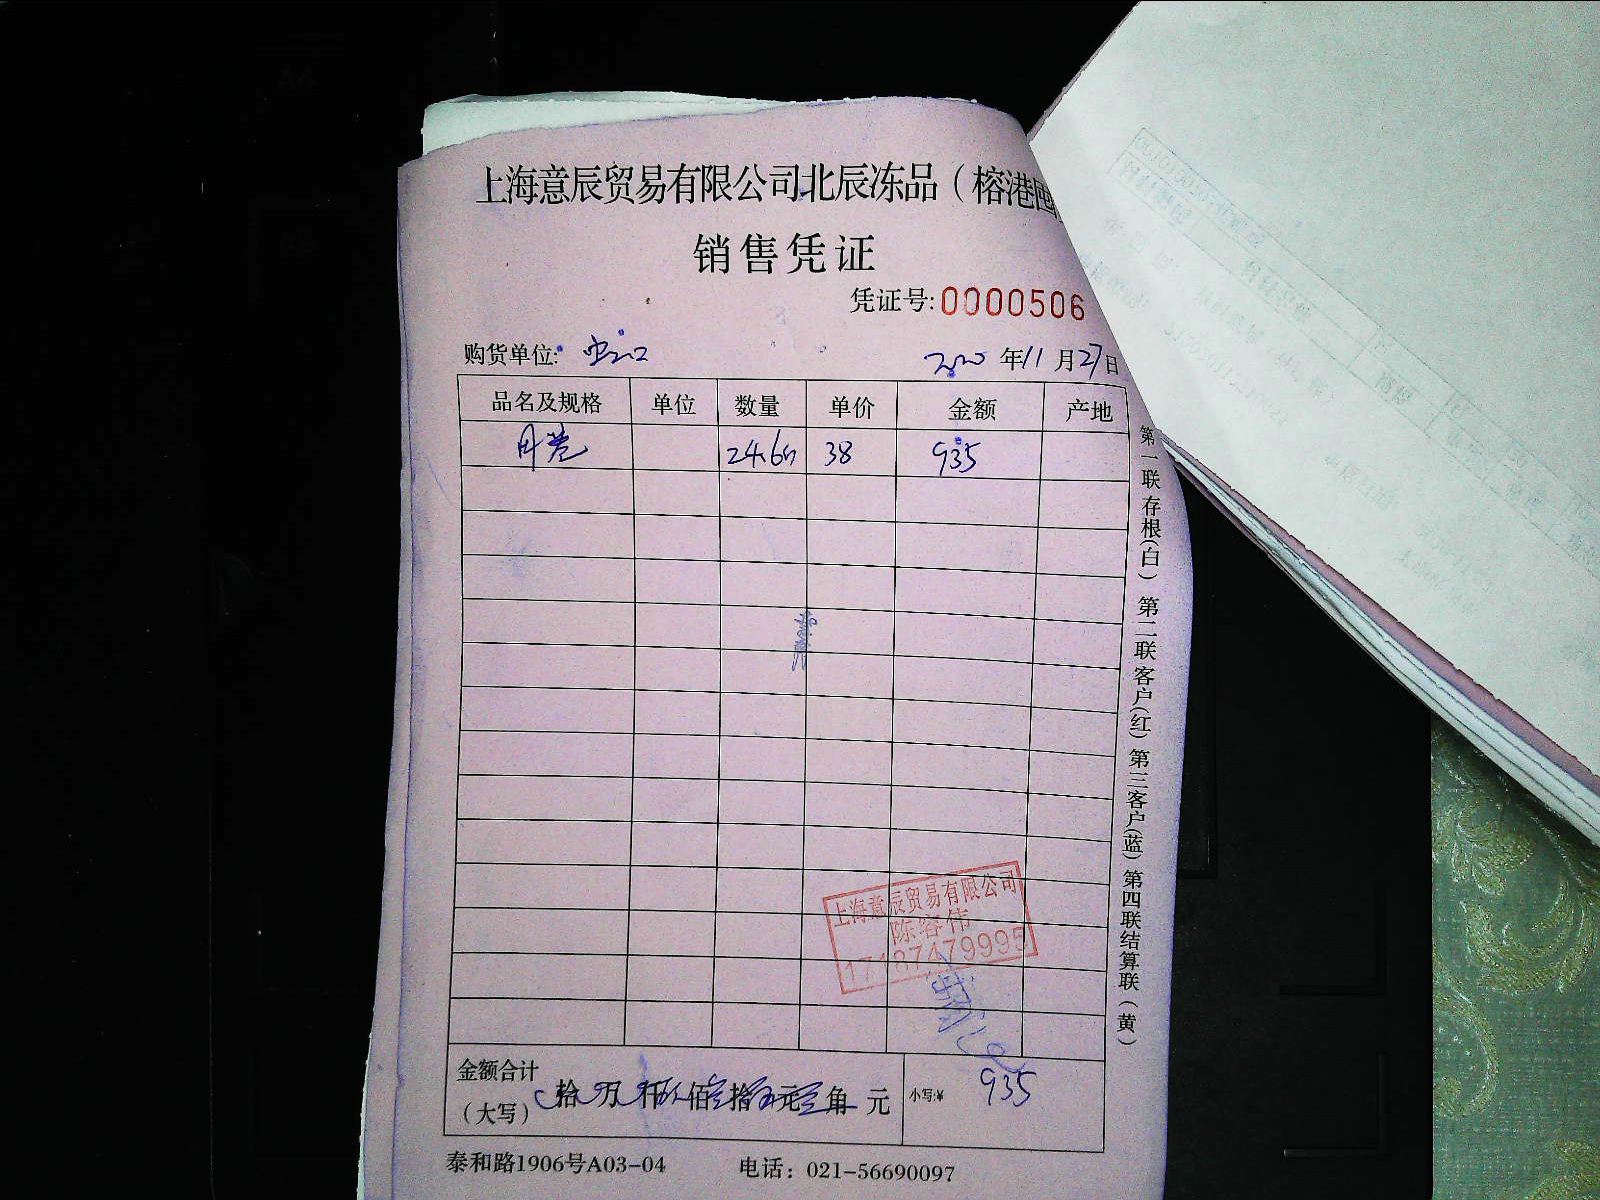 上海意辰贸易有限公司北辰冻品（榕港
销售凭证
凭证号:0000506
购货单位:
2020 年 11 月 27 日
品名及规格 单位 数量 单价 金额 产地
24.6 38 935
第一联存根(白) 第二联客户(红) 第三客户(蓝) 第四联结算联(黄)
上海意辰贸易有限公司
陈容伟
17187479995
金额合计
（大写） 拾 万 仟 佰 拾 元 角 元 小写:¥ 935
泰和路1906号A03-04 电话：021-56690097